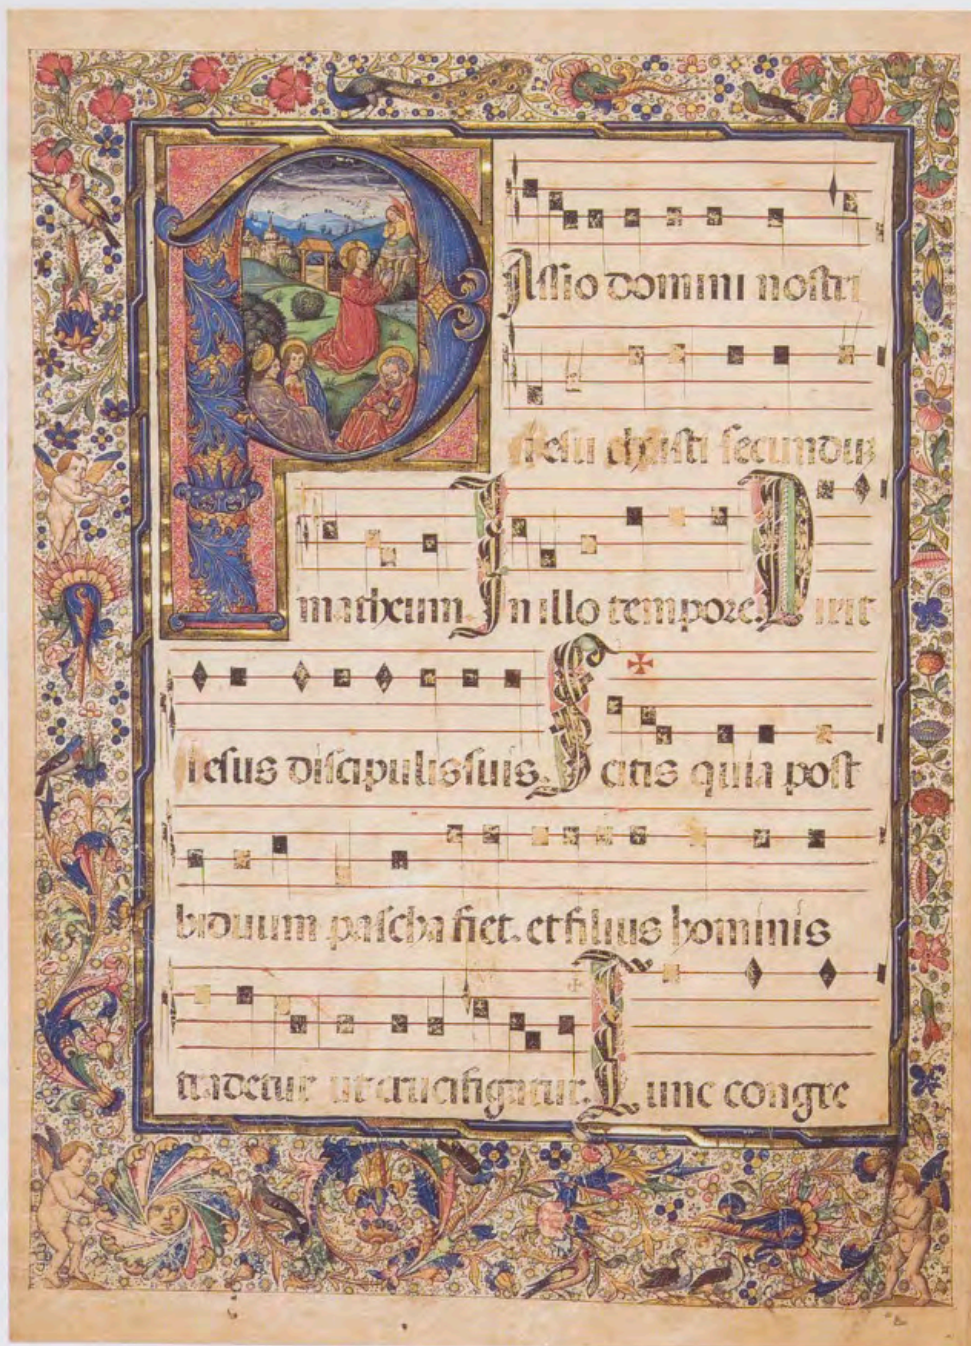 PAssio domini nostri
iesu christi secunduz
matheum In illo tempore. Dixit
iesus discipulis suis. Scitis quia post
biduum pascha fiet. et filius hominis
tradetur ut crucifigatur. Tunc congre